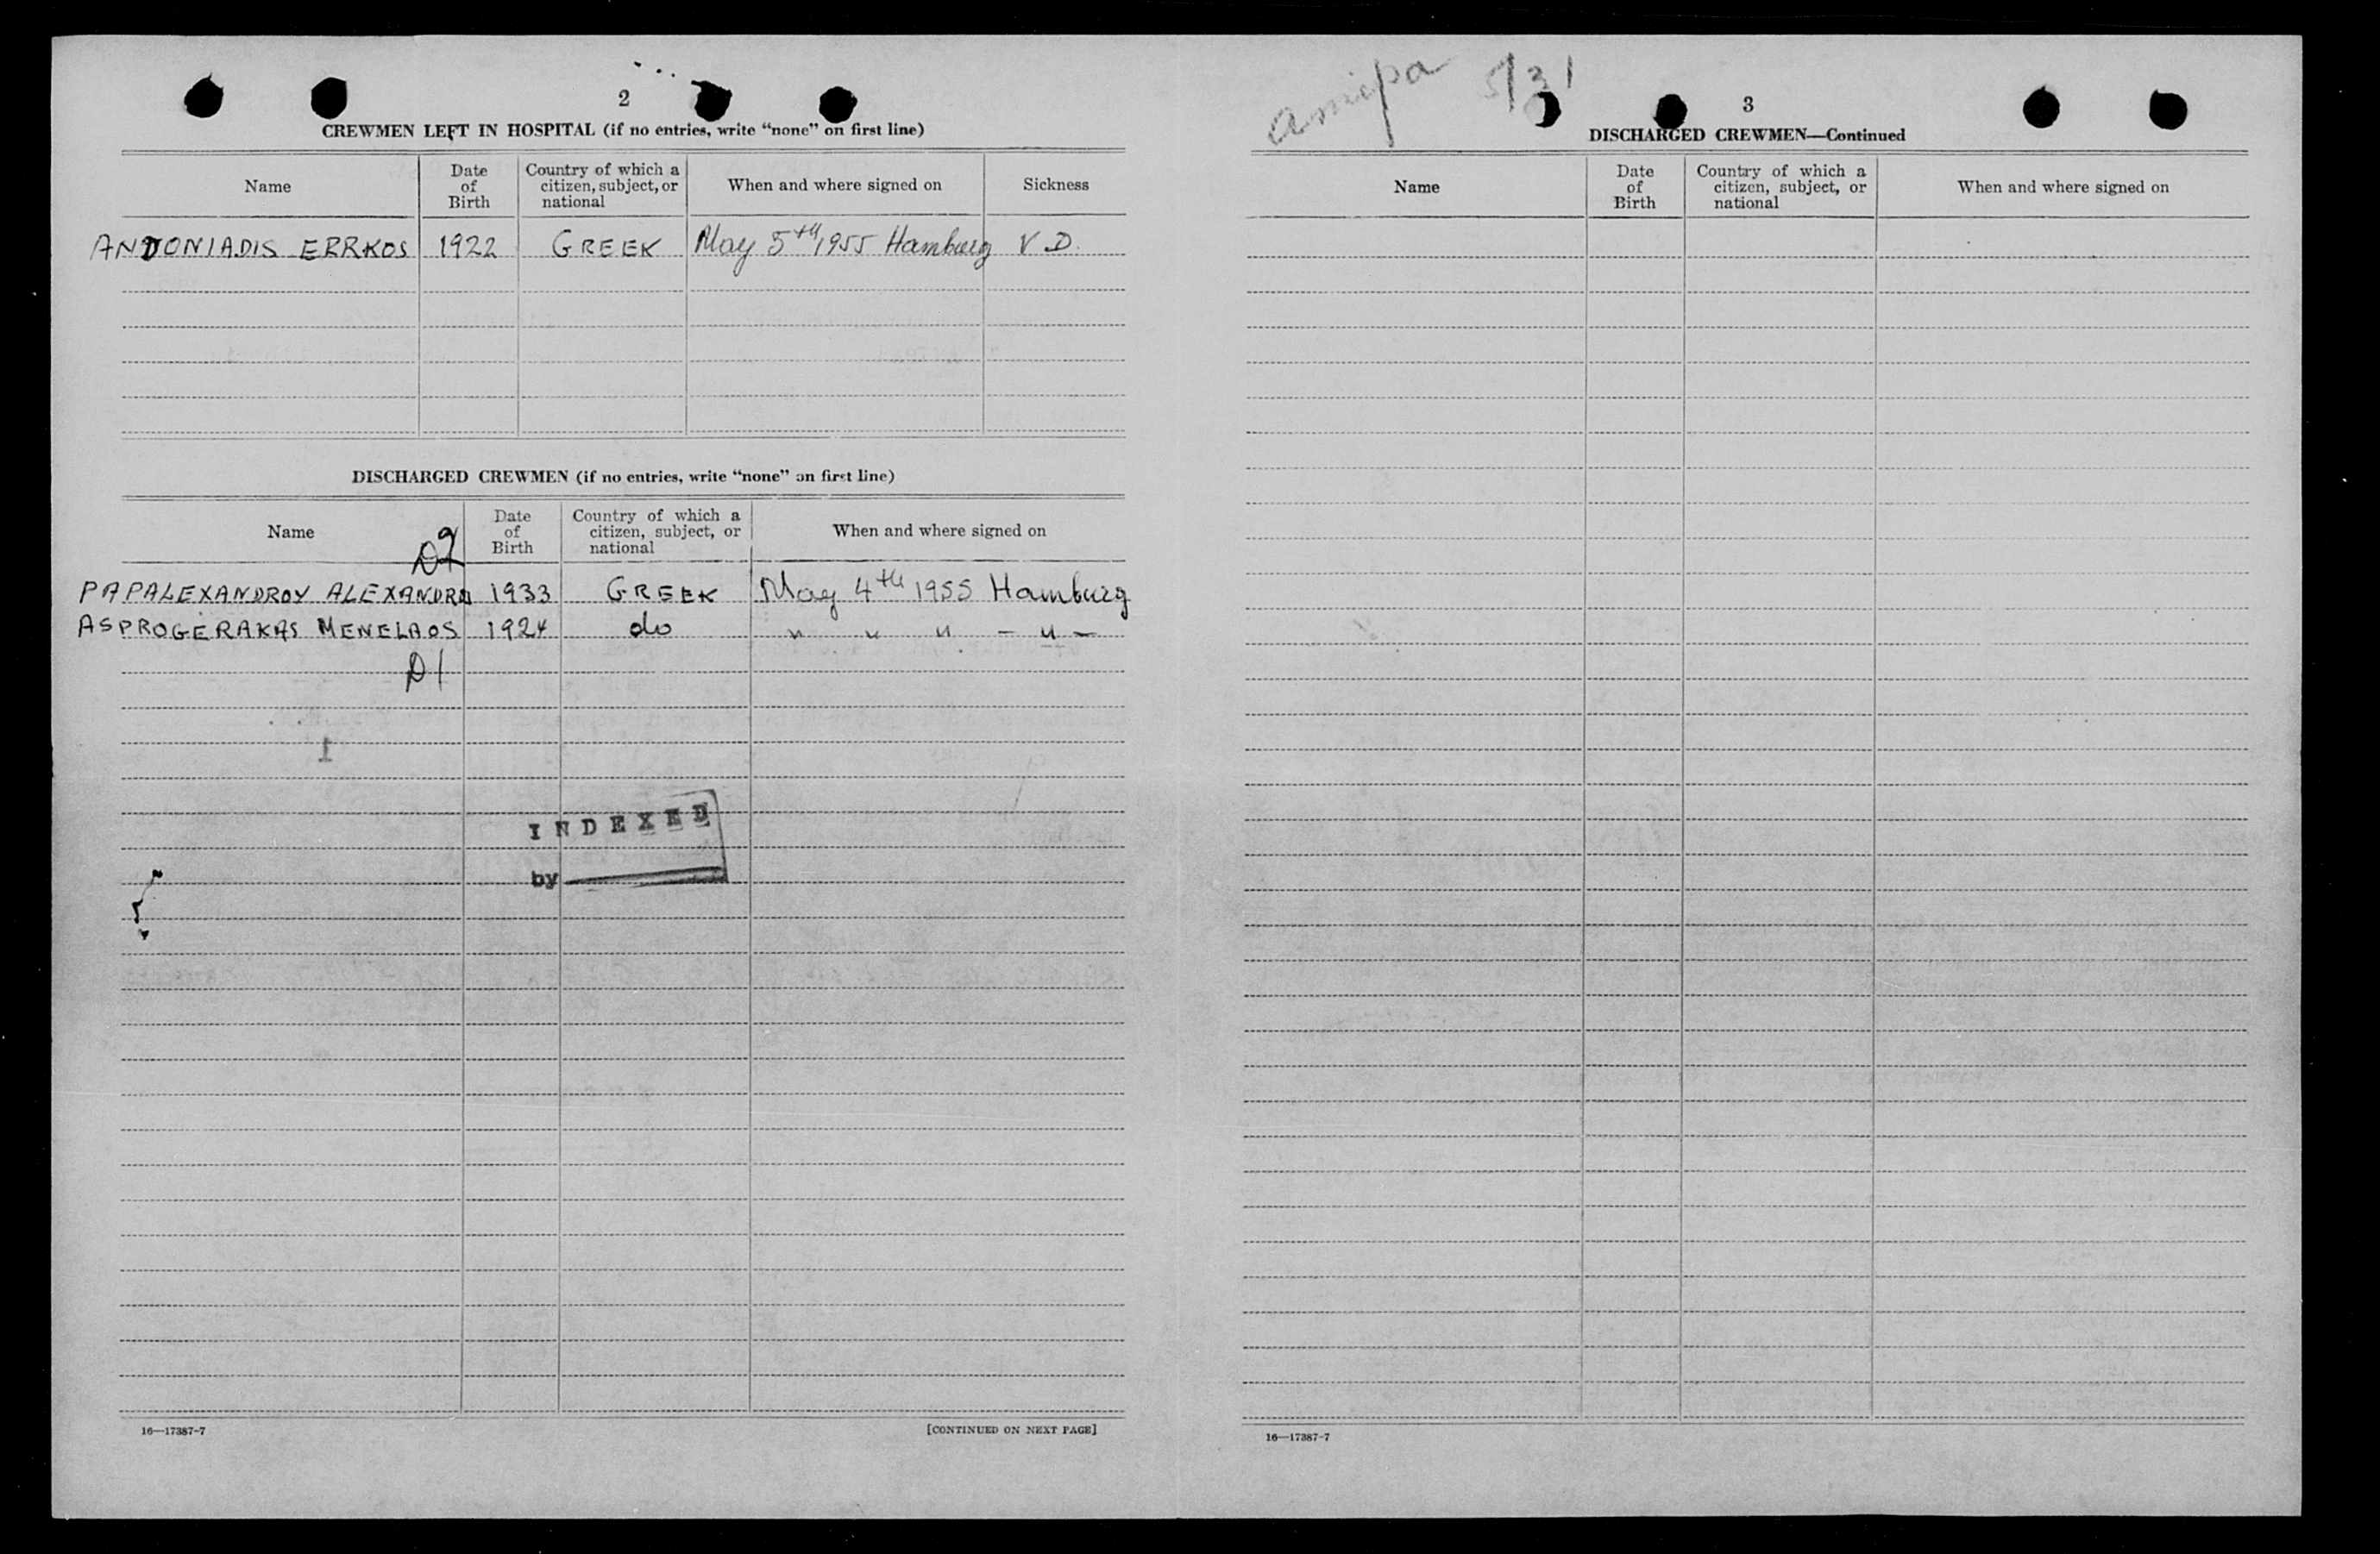 2
CREWMEN LEFT IN HOSPITAL (if no entries, write “none” on first line)
Name
Date of Birth
Country of which a citizen, subject, or national
When and where signed on
Sickness
ANDONIADIS ERRKOS 1922 GREEK May 5th 1955 Hamburg V.D.
DISCHARGED CREWMEN (if no entries, write “none” on first line)
Name
Date of Birth
Country of which a citizen, subject, or national
When and where signed on
D2
PAPALEXANDROY ALEXANDRO 1933 GREEK May 4th 1955 Hamburg
ASPROGERAKAS MENELAOS 1924 do " " " - " -
D1
1
INDEXED
by
16—17387-7
[CONTINUED ON NEXT PAGE]
5/31
3
DISCHARGED CREWMEN—Continued
Name
Date of Birth
Country of which a citizen, subject, or national
When and where signed on
16—17387-7